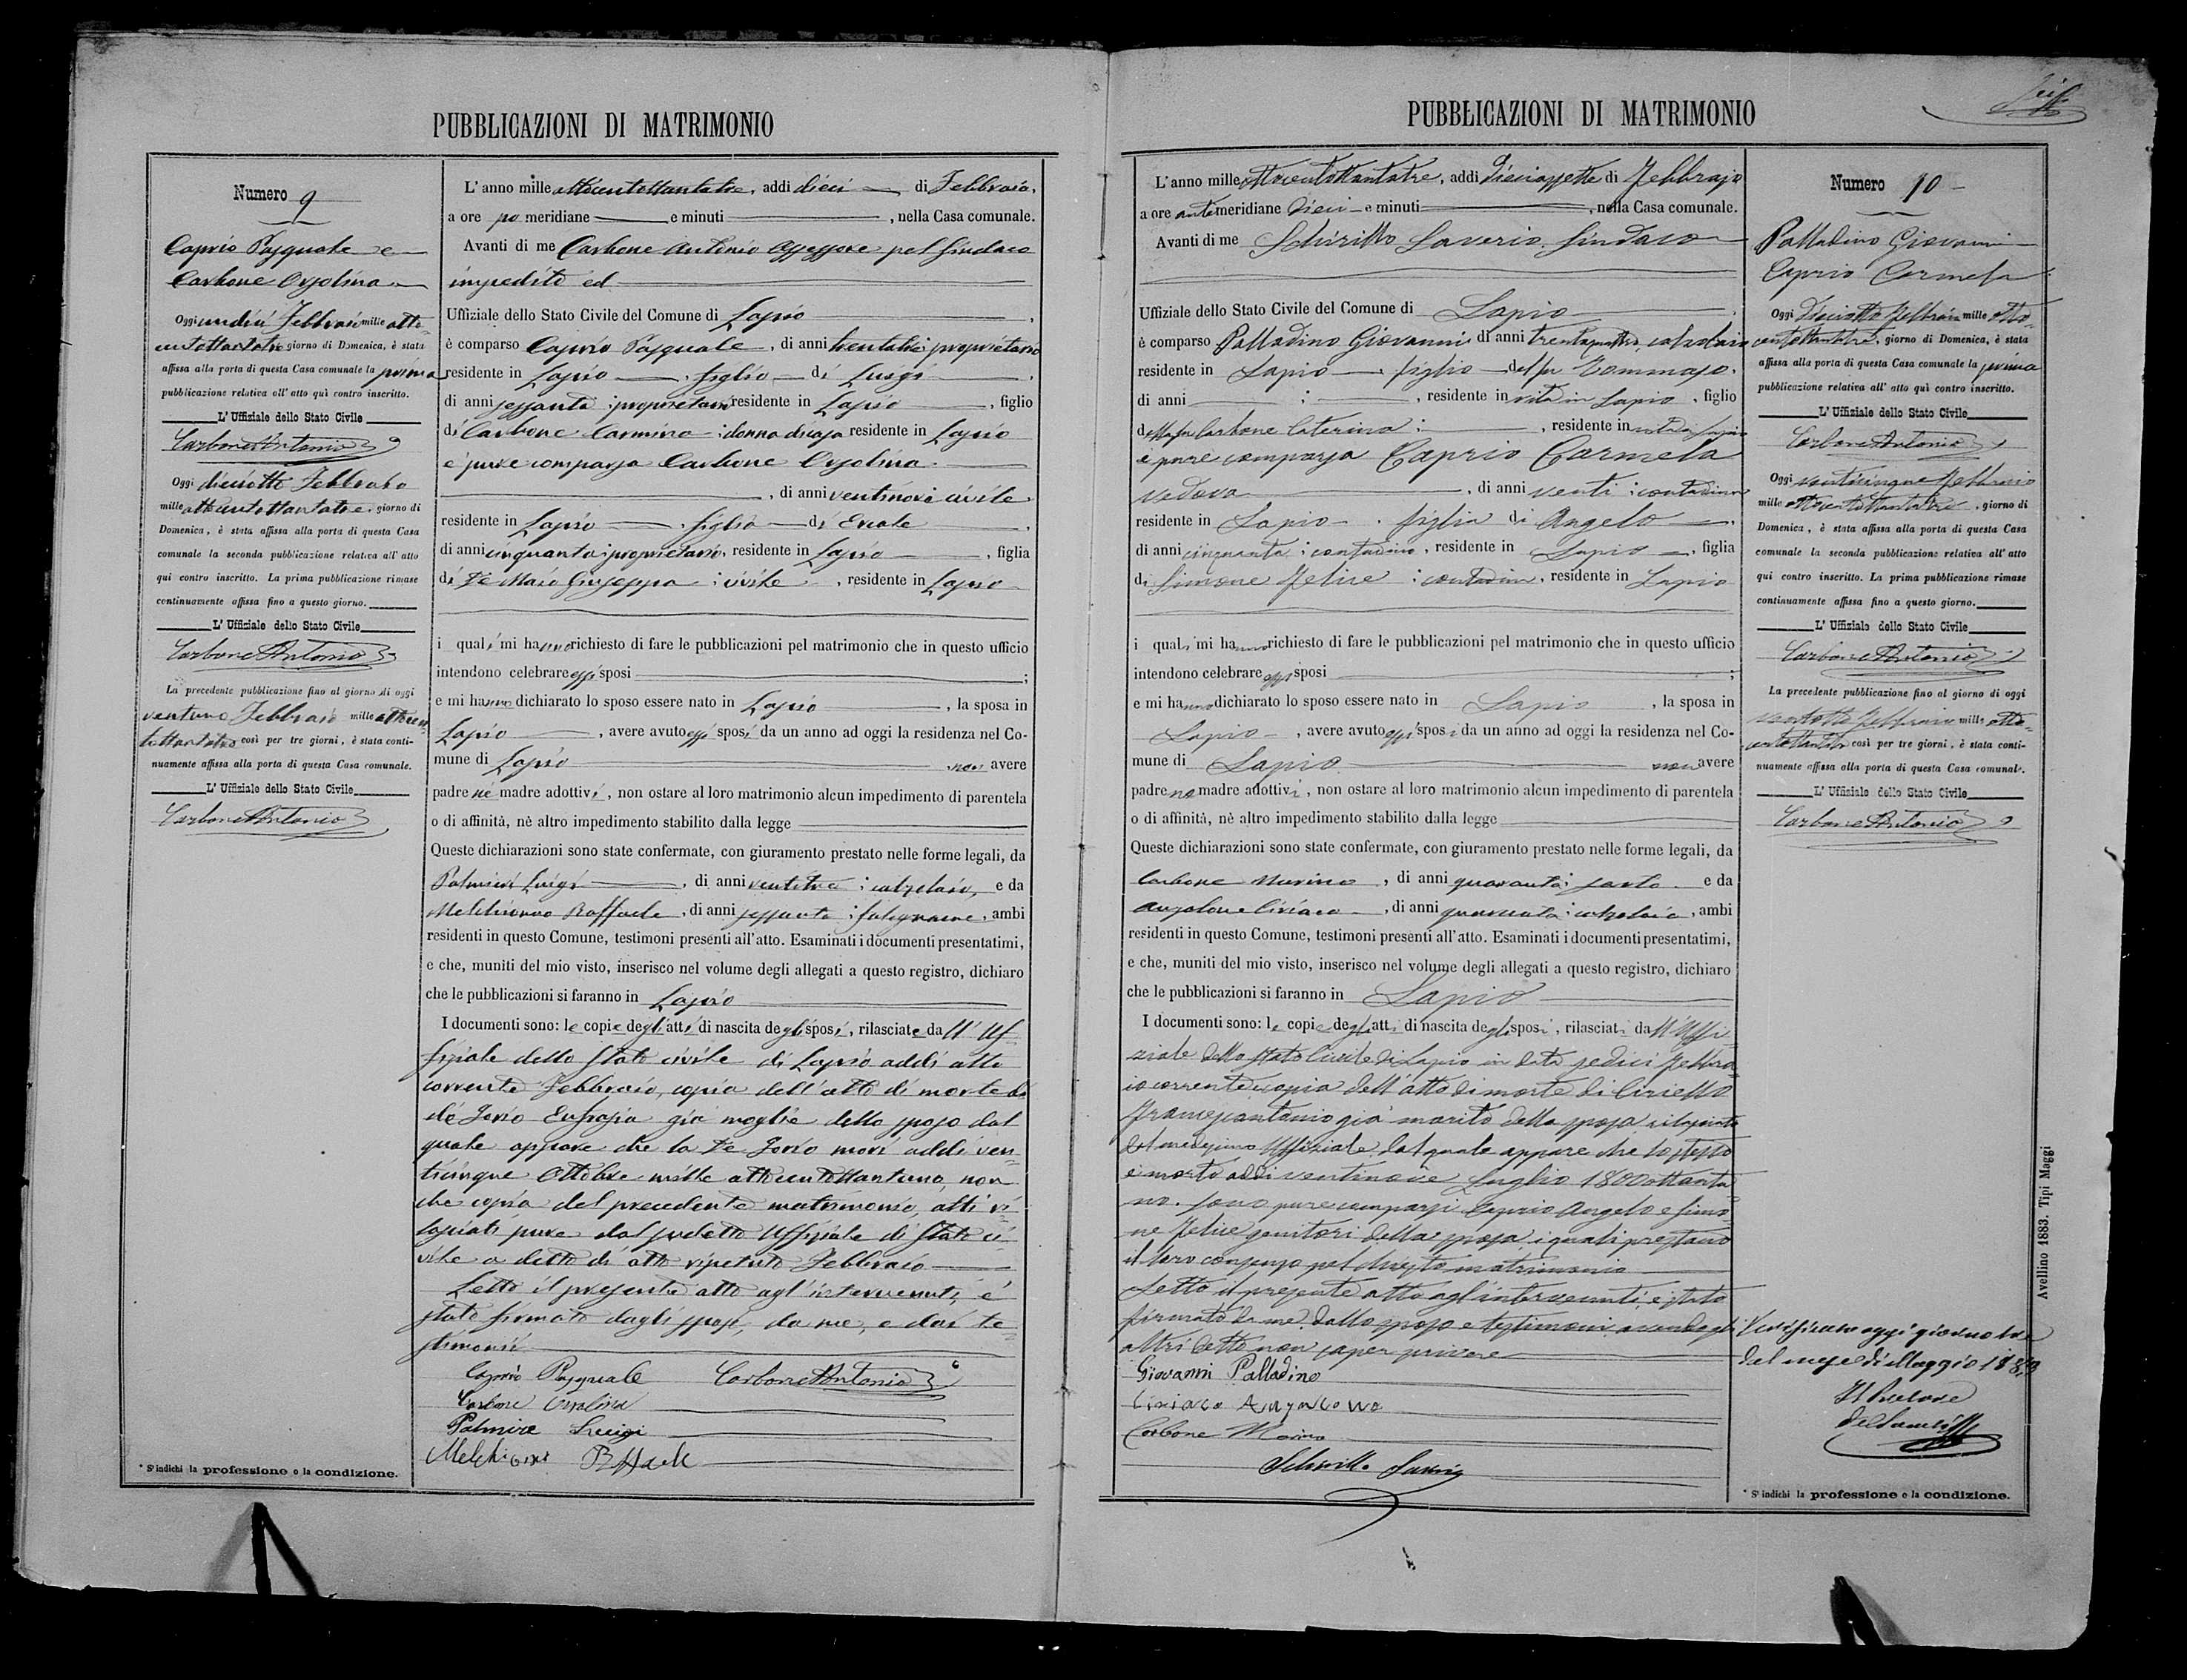 PUBBLICAZIONI DI MATRIMONIO
Numero 9
Caprio Pasquale e
Carbone Orsolina
Oggi undici Febbraio mille otto-
centottantatre giorno di Domenica, è stata
affissa alla porta di questa Casa comunale la prima
pubblicazione relativa all' atto quì contro inscritto.
L' Uffiziale dello Stato Civile
Carbone Antonio
Oggi diciotto Febbraio
mille ottocentottantatre, giorno di
Domenica, è stata affissa alla porta di questa Casa
comunale la seconda pubblicazione relativa all' atto
qui contro inscritto. La prima pubblicazione rimase
continuamente affissa fino a questo giorno.
L' Uffiziale dello Stato Civile
Carbone Antonio
La precedente pubblicazione fino al giorno di oggi
ventuno Febbraio mille ottocen
tottantatre così per tre giorni, è stata conti-
nuamente affissa alla porta di questa Casa comunale.
L' Uffiziale dello Stato Civile
Carbone Antonio
* Si indichi la professione o la condizione.
L' anno mille ottocentottantatre, addì dieci di Febbraio,
a ore po meridiane e minuti , nella Casa comunale.
Avanti di me Carbone Antonio Assessore pel Sindaco
impedito ed
Uffiziale dello Stato Civile del Comune di Lapio
è comparso Caprio Pasquale, di anni trentatre proprietario
residente in Lapio, figlio di Luigi
di anni sessanta; proprietario residente in Lapio, figlio
di Carbone Carmina; donna di casa residente in Lapio
è pure comparsa Carbone Orsolina
, di anni ventinove civile
residente in Lapio, figlia di Ercole
di anni cinquanta; proprietario, residente in Lapio, figlia
di De Maio Giuseppa; civile, residente in Lapio
i quali mi hanno richiesto di fare le pubblicazioni pel matrimonio che in questo ufficio
intendono celebrare essi sposi ;
e mi hanno dichiarato lo sposo essere nato in Lapio, la sposa in
Lapio, avere avuto essi sposi da un anno ad oggi la residenza nel Co-
mune di Lapio non avere
padre nè madre adottivi, non ostare al loro matrimonio alcun impedimento di parentela
o di affinità, nè altro impedimento stabilito dalla legge
Queste dichiarazioni sono state confermate, con giuramento prestato nelle forme legali, da
Palmieri Luigi, di anni ventitre; calzolaio, e da
Melchionno Raffaele, di anni sessanta; falegname, ambi
residenti in questo Comune, testimoni presenti all'atto. Esaminati i documenti presentatimi,
e che, muniti del mio visto, inserisco nel volume degli allegati a questo registro, dichiaro
che le pubblicazioni si faranno in Lapio
I documenti sono: le copie degli atti di nascita degli sposi, rilasciate da ll' Uf
fiziale dello Stato civile di Lapio addì otto
corrente Febbraio, copia dell' atto di morte di
de Jorio Eufrasia già moglie dello sposo dal
quale appare che la De Jorio morì addì ven-
ticinque Ottobre mille ottocentottantuno, non
che copia del precedente matrimonio, atti ri
lasciati pure dal predetto Uffiziale di Stato ci-
vile a detto dì otto ripetuto Febbraio
Letto il presente atto agl' intervenuti, è
stato firmato dagli sposi, da me, e dai te-
stimonii
Caprio Pasquale Carbone Antonio
Carbone Orsolina
Palmire Luigi
Melchionno
PUBBLICAZIONI DI MATRIMONIO
L' anno mille ottocentottantatre, addì diciassette di Febbrajo
a ore antimeridiane dieci e minuti , nella Casa comunale.
Avanti di me Schirillo Saverio Sindaco
Uffiziale dello Stato Civile del Comune di Lapio
è comparso Palladino Giovanni di anni trentaquattro, calzolaio
residente in Lapio, figlio del fu Tommaso.
di anni ; , residente in vita in Lapio, figlio
della fu Carbone Caterina; , residente in vita in Lapio
è pure comparsa Caprio Carmela
vedova, di anni venti; contadina
residente in Lapio, figlia di Angelo
di anni cinquanta; contadino, residente in Lapio, figlia
di Simone Felice; contadina, residente in Lapio
i quali mi hanno richiesto di fare le pubblicazioni pel matrimonio che in questo ufficio
intendono celebrare essi sposi ;
e mi hanno dichiarato lo sposo essere nato in Lapio, la sposa in
Lapio, avere avuto essi sposi da un anno ad oggi la residenza nel Co-
mune di Lapio non avere
padre nè madre adottivi, non ostare al loro matrimonio alcun impedimento di parentela
o di affinità, nè altro impedimento stabilito dalla legge
Queste dichiarazioni sono state confermate, con giuramento prestato nelle forme legali, da
Carbone Marino, di anni quaranta; sarto e da
Anzalone Ciriaco, di anni quaranta; calzolaio, ambi
residenti in questo Comune, testimoni presenti all'atto. Esaminati i documenti presentatimi,
e che, muniti del mio visto, inserisco nel volume degli allegati a questo registro, dichiaro
che le pubblicazioni si faranno in Lapio
I documenti sono: le copie degli atti di nascita degli sposi, rilasciati da ll' Uffi-
ziale dello Stato Civile di Lapio in data sedici Febbra-
io corrente, copia dell' atto di morte di Ciriello
Francescantonio già marito della sposa, rilasciata
dal medesimo Uffiziale, dal quale appare che lo stesso
è morto addì ventinove Luglio 1800ottanta
no. Sono pure comparsi Caprio Angelo e Simo-
ne Felice genitori della sposa, i quali prestano
il loro consenso pel divisato matrimonio
Letto il presente atto agl' intervenuti, è stato
firmato da me, dallo sposo e testimoni, avendo gli
altri detto non saper scrivere
Giovanni Palladino
Ciriaco
Carbone Marino
Schirillo Saverio
Numero 10
Palladino Giovanni
Caprio Carmela
Oggi diciotto Febbraio mille otto-
centottantatre, giorno di Domenica, è stata
affissa alla porta di questa Casa comunale la prima
pubblicazione relativa all' atto quì contro inscritto.
L' Uffiziale dello Stato Civile
Carbone Antonio
Oggi venticinque Febbraio
mille ottocentottantatre, giorno di
Domenica, è stata affissa alla porta di questa Casa
comunale la seconda pubblicazione relativa all' atto
qui contro inscritto. La prima pubblicazione rimase
continuamente affissa fino a questo giorno.
L' Uffiziale dello Stato Civile
Carbone Antonio
La precedente pubblicazione fino al giorno di oggi
ventotto Febbraio mille otto-
centottantatre così per tre giorni, è stata conti-
nuamente affissa alla porta di questa Casa comunale.
L' Uffiziale dello Stato Civile
Carbone Antonio
Verificato oggi giorno tre
del mese di Maggio 1883
Il Pretore
* Si indichi la professione o la condizione.
Avellino 1883. Tipi Maggi